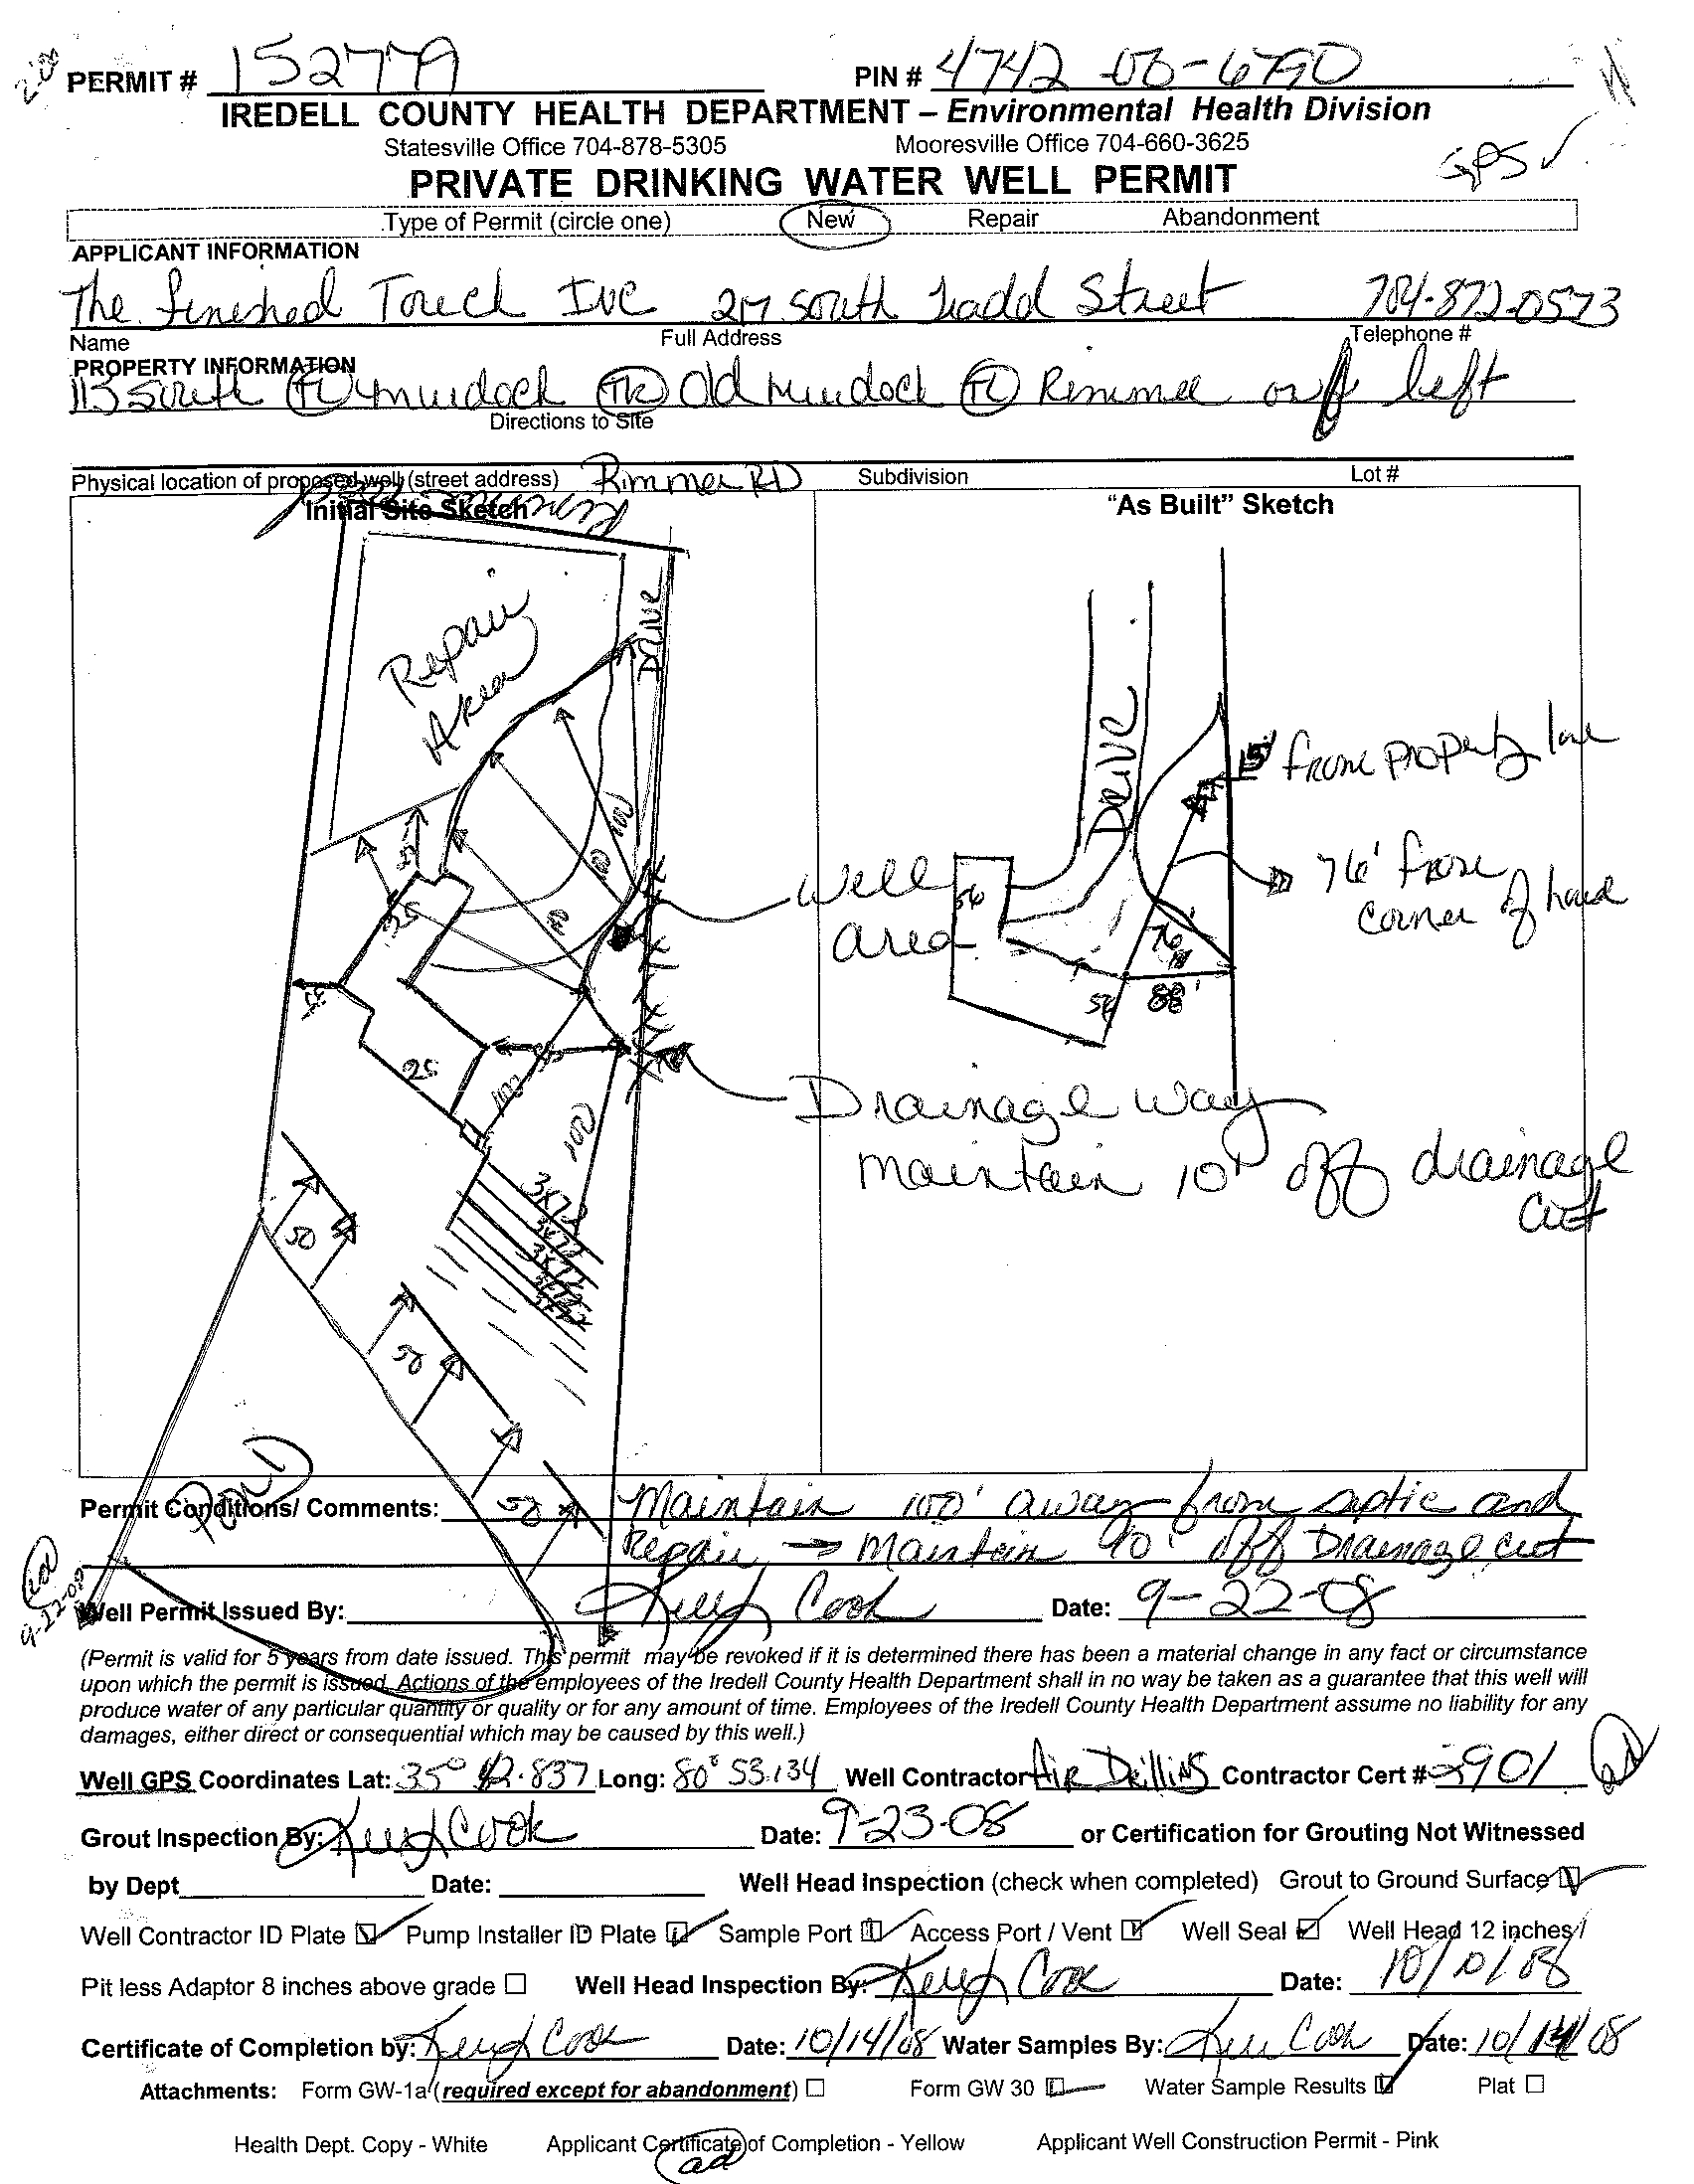 PERMIT # 152779 PIN # 4742-06-6790
IREDELL COUNTY HEALTH DEPARTMENT – Environmental Health Division
Statesville Office 704-878-5305 Mooresville Office 704-660-3625
GPS ✓
PRIVATE DRINKING WATER WELL PERMIT
Type of Permit (circle one) New Repair Abandonment
APPLICANT INFORMATION
The Finished Touch Inc 217 South Tradd Street 704-872-0573
Name Full Address Telephone #
PROPERTY INFORMATION
115 South TL murdock TR Old Murdock TL Rimmer on left
Directions to Site
Physical location of proposed well (street address) Rimmer RD Subdivision Lot #
Initial Site Sketch "As Built" Sketch
Repair Area
Drive
DRIVE
15' from property line
76' from corner of house
Well area
56
76
56
88'
100
25
25
100
100
Drainage way
maintain 10' off drainage cut
3X72
3X72
3X72
50
50
50
Pond
Permit Conditions/ Comments: Maintain 100' away from septic and
Repair → Maintain 10' off Drainage cut
9-22-08
Well Permit Issued By: Kelly Cook Date: 9-22-08
(Permit is valid for 5 years from date issued. This permit may be revoked if it is determined there has been a material change in any fact or circumstance
upon which the permit is issued. Actions of the employees of the Iredell County Health Department shall in no way be taken as a guarantee that this well will
produce water of any particular quantity or quality or for any amount of time. Employees of the Iredell County Health Department assume no liability for any
damages, either direct or consequential which may be caused by this well.)
Well GPS Coordinates Lat: 35° 42.837 Long: 80° 53.134 Well Contractor Air Drilling Contractor Cert # 2901
Grout Inspection By: Kelly Cook Date: 9-23-08 or Certification for Grouting Not Witnessed
by Dept Date: Well Head Inspection (check when completed) Grout to Ground Surface
Well Contractor ID Plate Pump Installer ID Plate Sample Port Access Port / Vent Well Seal Well Head 12 inches/
Pit less Adaptor 8 inches above grade ☐ Well Head Inspection By: Kelly Cook Date: 10/10/08
Certificate of Completion by: Kelly Cook Date: 10/14/08 Water Samples By: Kelly Cook Date: 10/14/08
Attachments: Form GW-1a (required except for abandonment) ☐ Form GW 30 Water Sample Results Plat ☐
Health Dept. Copy - White Applicant Certificate of Completion - Yellow Applicant Well Construction Permit - Pink